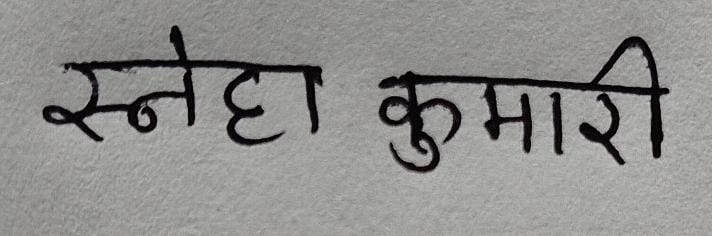 स्नेहा कुमारी